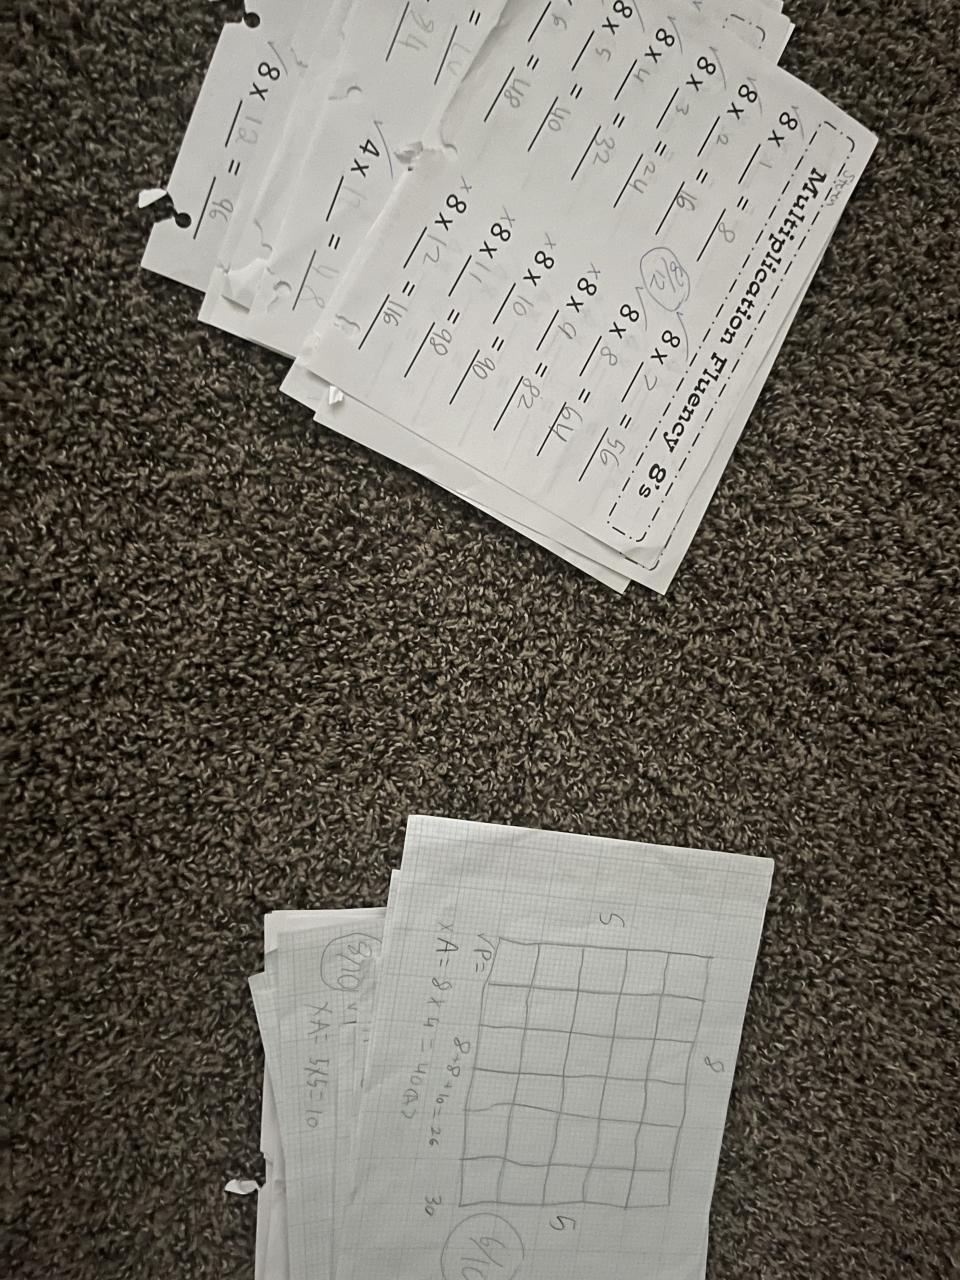 Multiplication Fluency 8's
√8 x 1 = 8
√8 x 2 = 16
√8 x 3 = 24
√8 x 4 = 32
8 x 5 = 40
6 = 48
8/12
√8 x 7 = 56
√8 x 8 = 64
x8 x 9 = 82
x8 x 10 = 90
x8 x 11 = 98
x8 x 12 = 116
√4 x = 48
√8 x 12 = 96
5
8
5
√P=
8+8+10=26
xA=8x4=40
30
6/10
9/10
xA=5x5=10